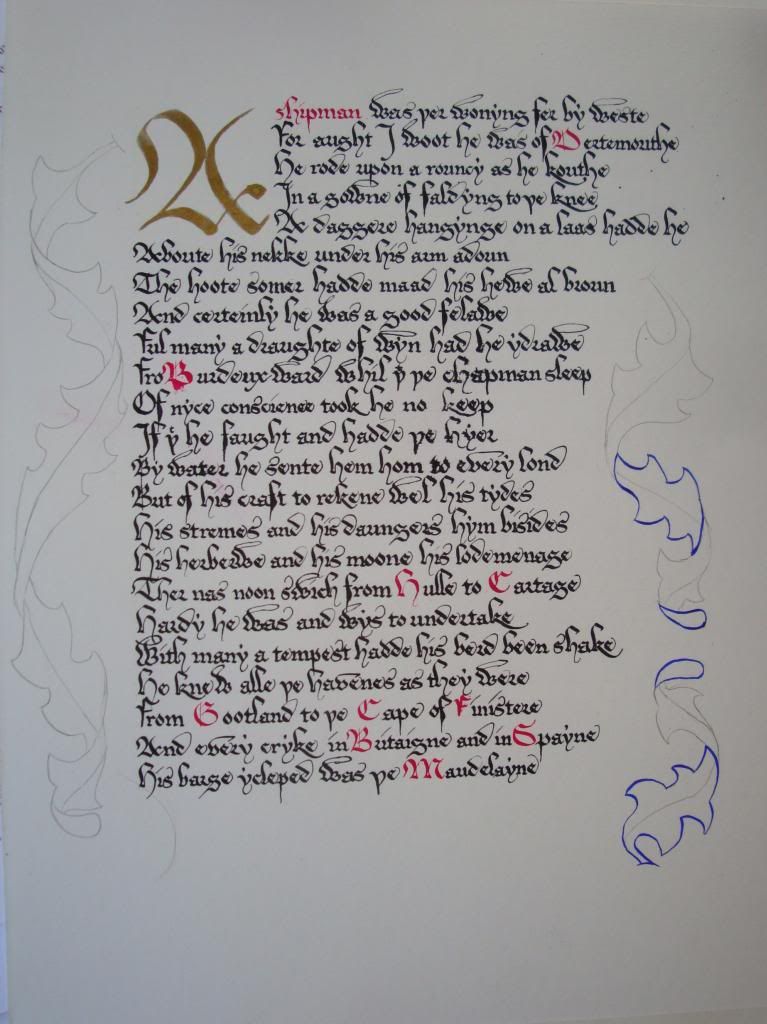 A shipman was þer wonyng fer by weste
For aught I woot he was of Dertemouthe
He rode upon a rouncy as he kouthe
In a gowne of faldyng to þe knee
A daggere hangynge on a laas hadde he
Aboute his nekke under his arm adoun
The hoote somer hadde maad his hewe al broun
And certeinly he was a good felawe
Ful many a draughte of wyn had he ydrawe
Fro Burdeux ward whil þͭ þe chapman sleep
Of nyce conscience took he no keep
If þͭ he faught and hadde þe hyer
By water he sente hem hom to every lond
But of his craft to rekene wel his tydes
His stremes and his daungers hym bisides
His herberwe and his moone his lodemenage
Ther nas noon swich from Hulle to Cartage
Hardy he was and wys to undertake
With many a tempest hadde his berd been shake
He knew alle þe havenes as they were
From Gootland to þe Cape of Finistere
And every cryke in Britaigne and in Spayne
His barge ycleped was þe Maudelayne